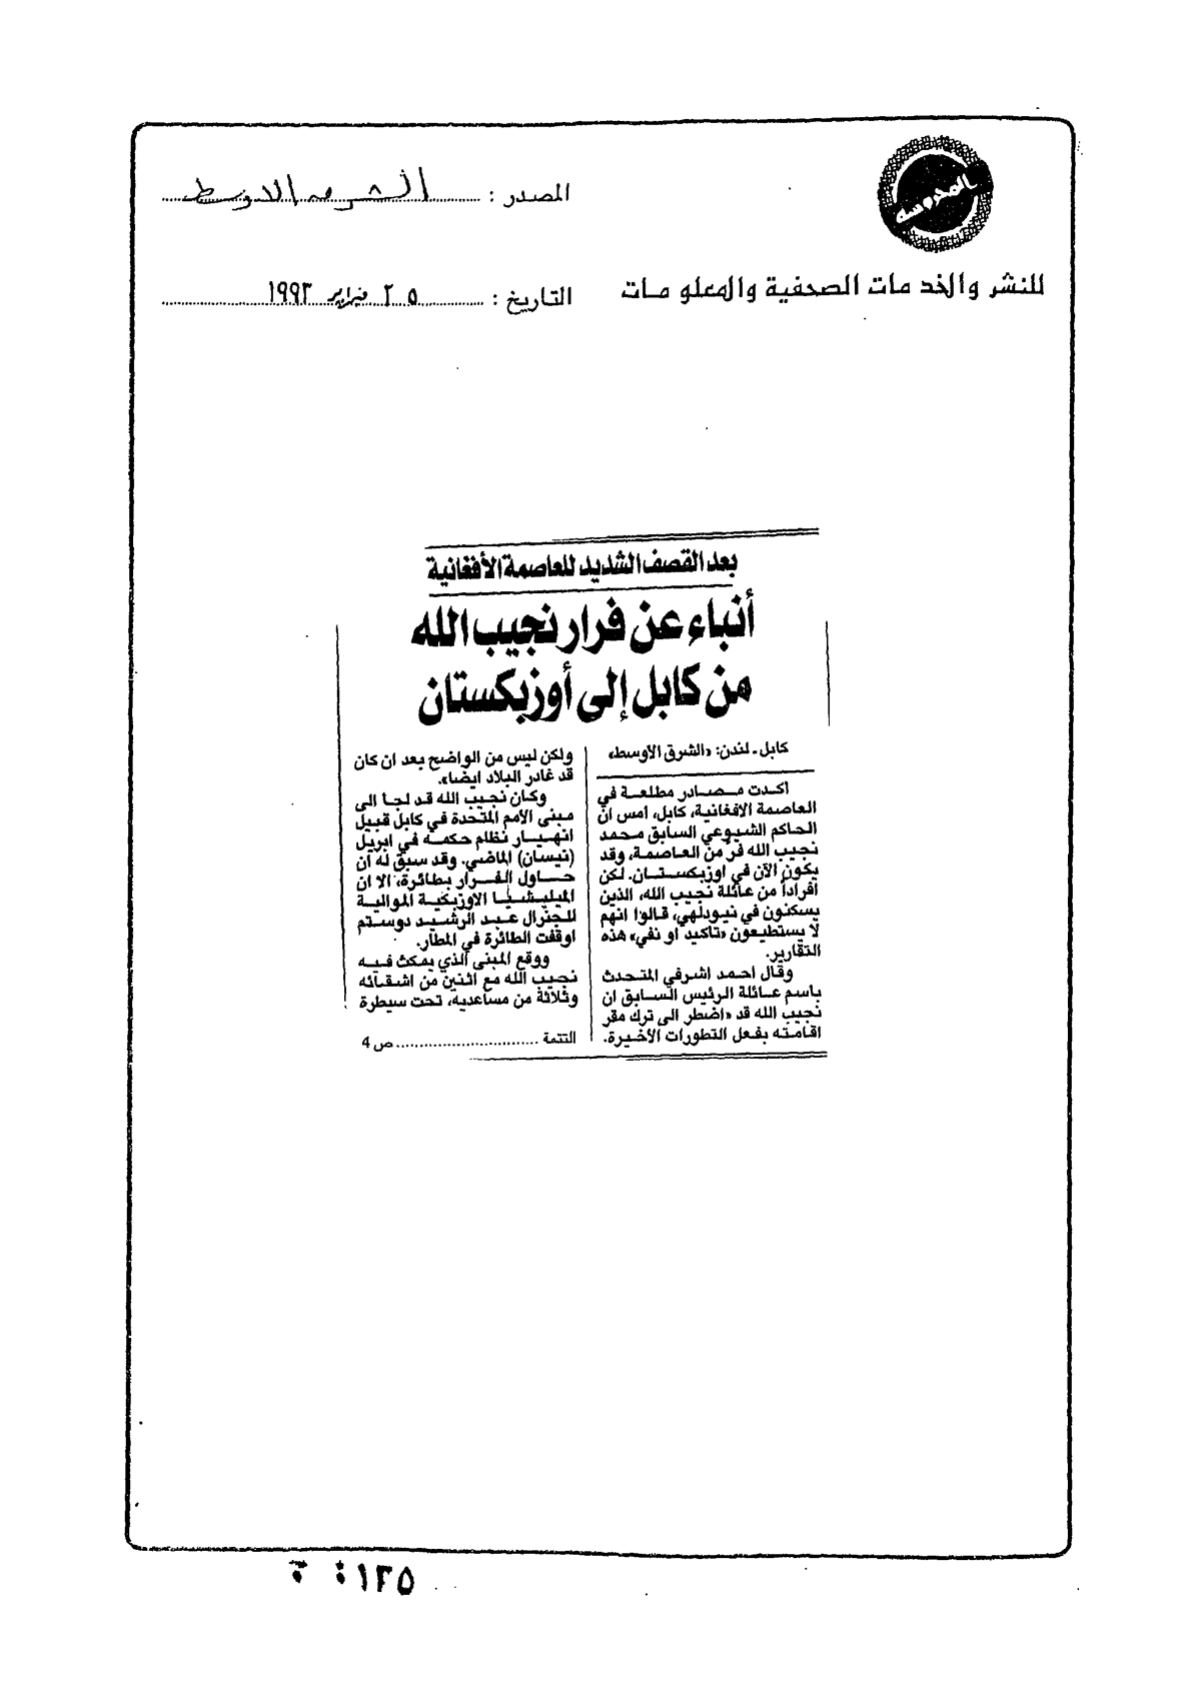 المحروسة
المصدر : الشرق الاوسط
للنشر والخدمات الصحفية والمعلومات
التاريخ : ٢٥ فبراير ١٩٩٣
بعد القصف الشديد للعاصمة الأفغانية
أنباء عن فرار نجيب الله
من كابل إلى أوزبكستان
كابل ـ لندن: «الشرق الأوسط»
اكدت مصادر مطلعة في
العاصمة الافغانية، كابل، امس ان
الحاكم الشيوعي السابق محمد
نجيب الله فر من العاصمة، وقد
يكون الآن في اوزبكستان. لكن
افراداً من عائلة نجيب الله، الذين
يسكنون في نيودلهي، قالوا انهم
لا يستطيعون «تاكيد او نفي» هذه
التقارير.
وقال احمد اشرفي المتحدث
باسم عائلة الرئيس السابق ان
نجيب الله قد «اضطر الى ترك مقر
اقامته بفعل التطورات الأخيرة.
ولكن ليس من الواضح بعد ان كان
قد غادر البلاد ايضا».
وكان نجيب الله قد لجا الى
مبنى الأمم المتحدة في كابل قبيل
انهيار نظام حكمه في ابريل
(نيسان) الماضي. وقد سبق له ان
حاول الفرار بطائرة، الا ان
الميليشيا الاوزبكية الموالية
للجنرال عبد الرشيد دوستم
اوقفت الطائرة في المطار.
ووقع المبنى الذي يمكث فيه
نجيب الله مع اثنين من اشقائه
وثلاثة من مساعديه، تحت سيطرة
التتمة .............................. ص 4
١٢٥